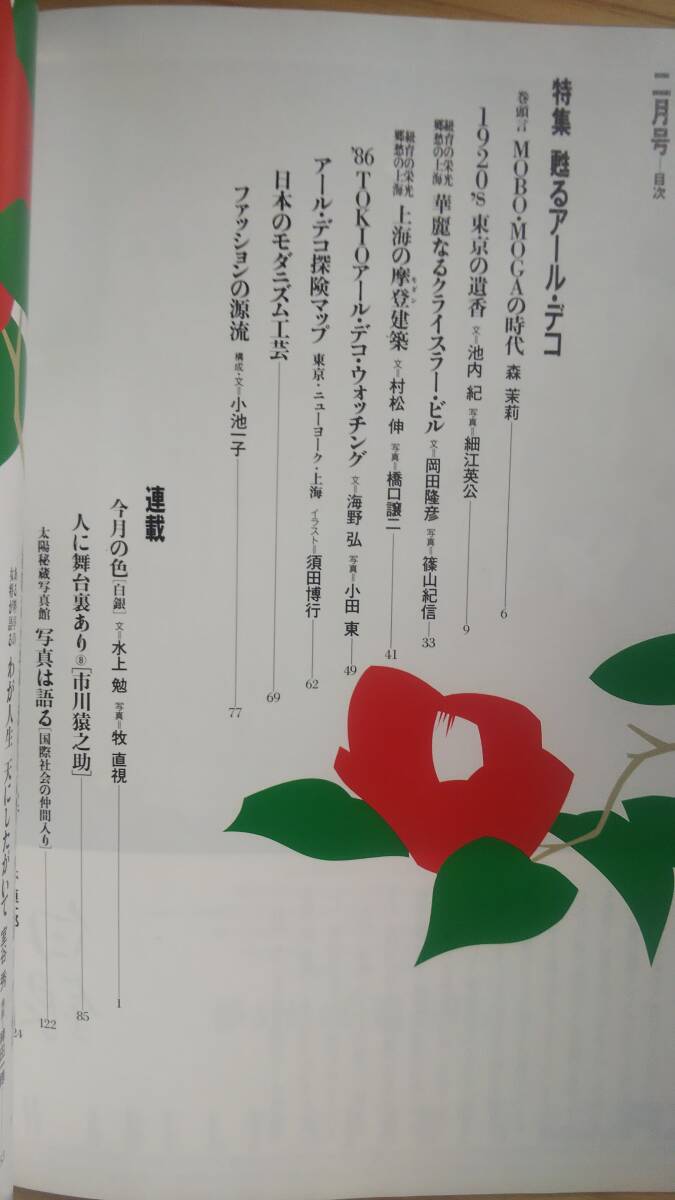 二月号―目次
特集 甦るアール・デコ
巻頭言 MOBO・MOGAの時代 森 茉莉 6
1920's 東京の遺香 文=池内 紀 写真=細江英公 9
紐育の栄光 郷愁の上海 華麗なるクライスラー・ビル 文=岡田隆彦 写真=篠山紀信 33
紐育の栄光 郷愁の上海 上海の摩登建築 モダン 文=村松 伸 写真=橋口譲二 41
'86 TOKIOアール・デコ・ウォッチング 文=海野 弘 写真=小田 東 49
アール・デコ探険マップ 東京・ニューヨーク・上海 イラスト=須田博行 62
日本のモダニズム工芸 69
ファッションの源流 構成・文=小池一子 77
連載
今月の色[白銀] 文=水上 勉 写真=牧 直視 1
人に舞台裏あり⑧[市川猿之助] 85
太陽秘蔵写真館 写真は語る[国際社会の仲間入り] 122
わが人生 天にしたがいて
24